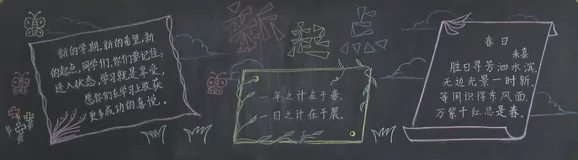 新的学期,新的希望,新
的起点,同学们,你们要记住:
进入状态,学习就是享受,
愿你们在学习上收获
更多成功的喜悦。
新起点
一年之计在于春,
一日之计在于晨。
春日
朱熹
胜日寻芳泗水滨,
无边光景一时新。
等闲识得东风面,
万紫千红总是春。